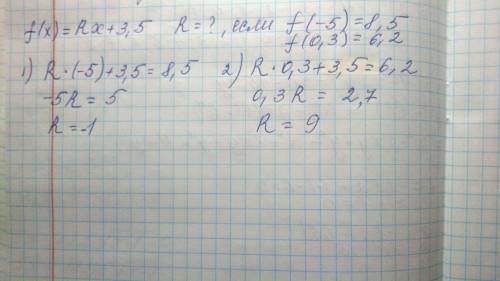 f(x)=Rx+3,5 R=?, если f(-5)=8,5
f(0,3)=6,2
1) R·(-5)+3,5=8,5 2) R·0,3+3,5=6,2
-5R=5 0,3R=2,7
R=-1 R=9